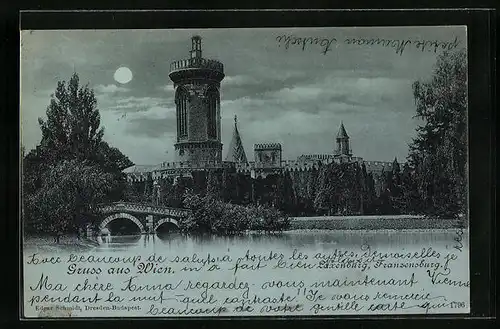 beaucoup de saluts à toutes les autres demoiselles je
Gruss aus Wien.
m'a fait bien
Laxenburg, Franzensburg.
Ma chère Anna regardez vous maintenant Vienne
pendant la nuit quel contraste! Je vous remercie
Edgar Schmidt, Dresden-Budapest.
beaucoup de votre gentille carte qui
1796